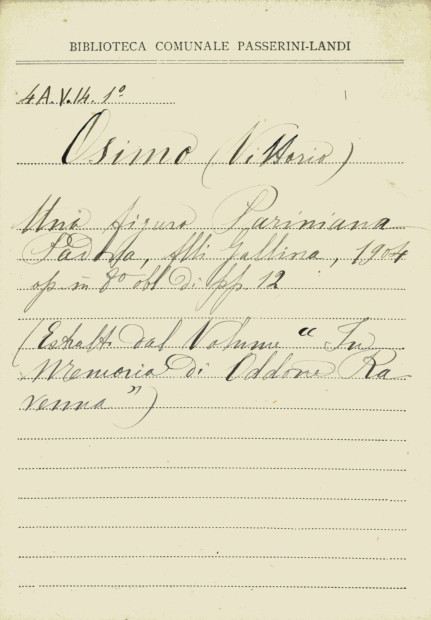 BIBLIOTECA COMUNALE PASSERINI-LANDI
4A.V.14.1º
Osimo (Vittorio)
Una figura Pariniana
Padova, flli Gallina, 1904
op in 8º obl di pp 12
(Estratt. dal Volume “ In
Memoria di Oddone Ra
venna ”)